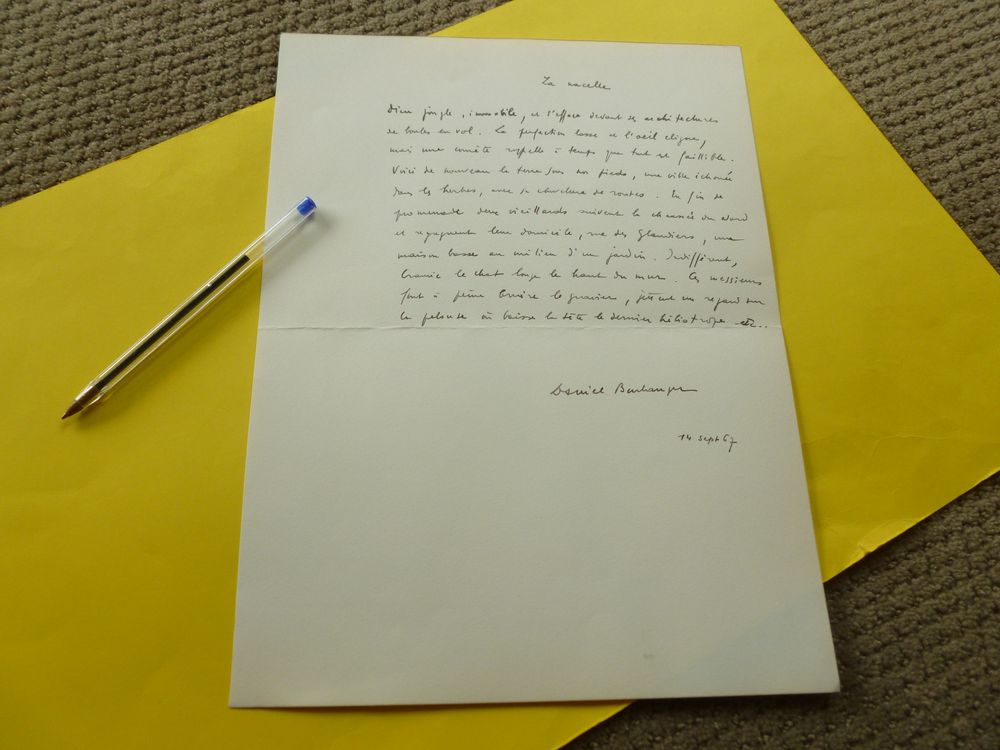 La nacelle
Dieu jongle, immobile, et s'efface devant ses architectures
de boules en vol. La perfection lasse et l'oeil cligne,
mais une comète rappelle à temps que tout est faillible.
Voici de nouveau la terre sous nos pieds, une ville échouée
dans les herbes, avec sa chevelure de routes. En fin de
promenade deux vieillards suivent la chaussée du Nord
et regagnent leur domicile, rue des Glandiers, une
maison basse au milieu d'un jardin. Indifférent,
le chat longe le haut du mur. Ces messieurs
font à peine bruire le gravier, jettent un regard sur
la pelouse où baisse la tête le dernier héliotrope etc..
Daniel Boulanger
14 sept 67